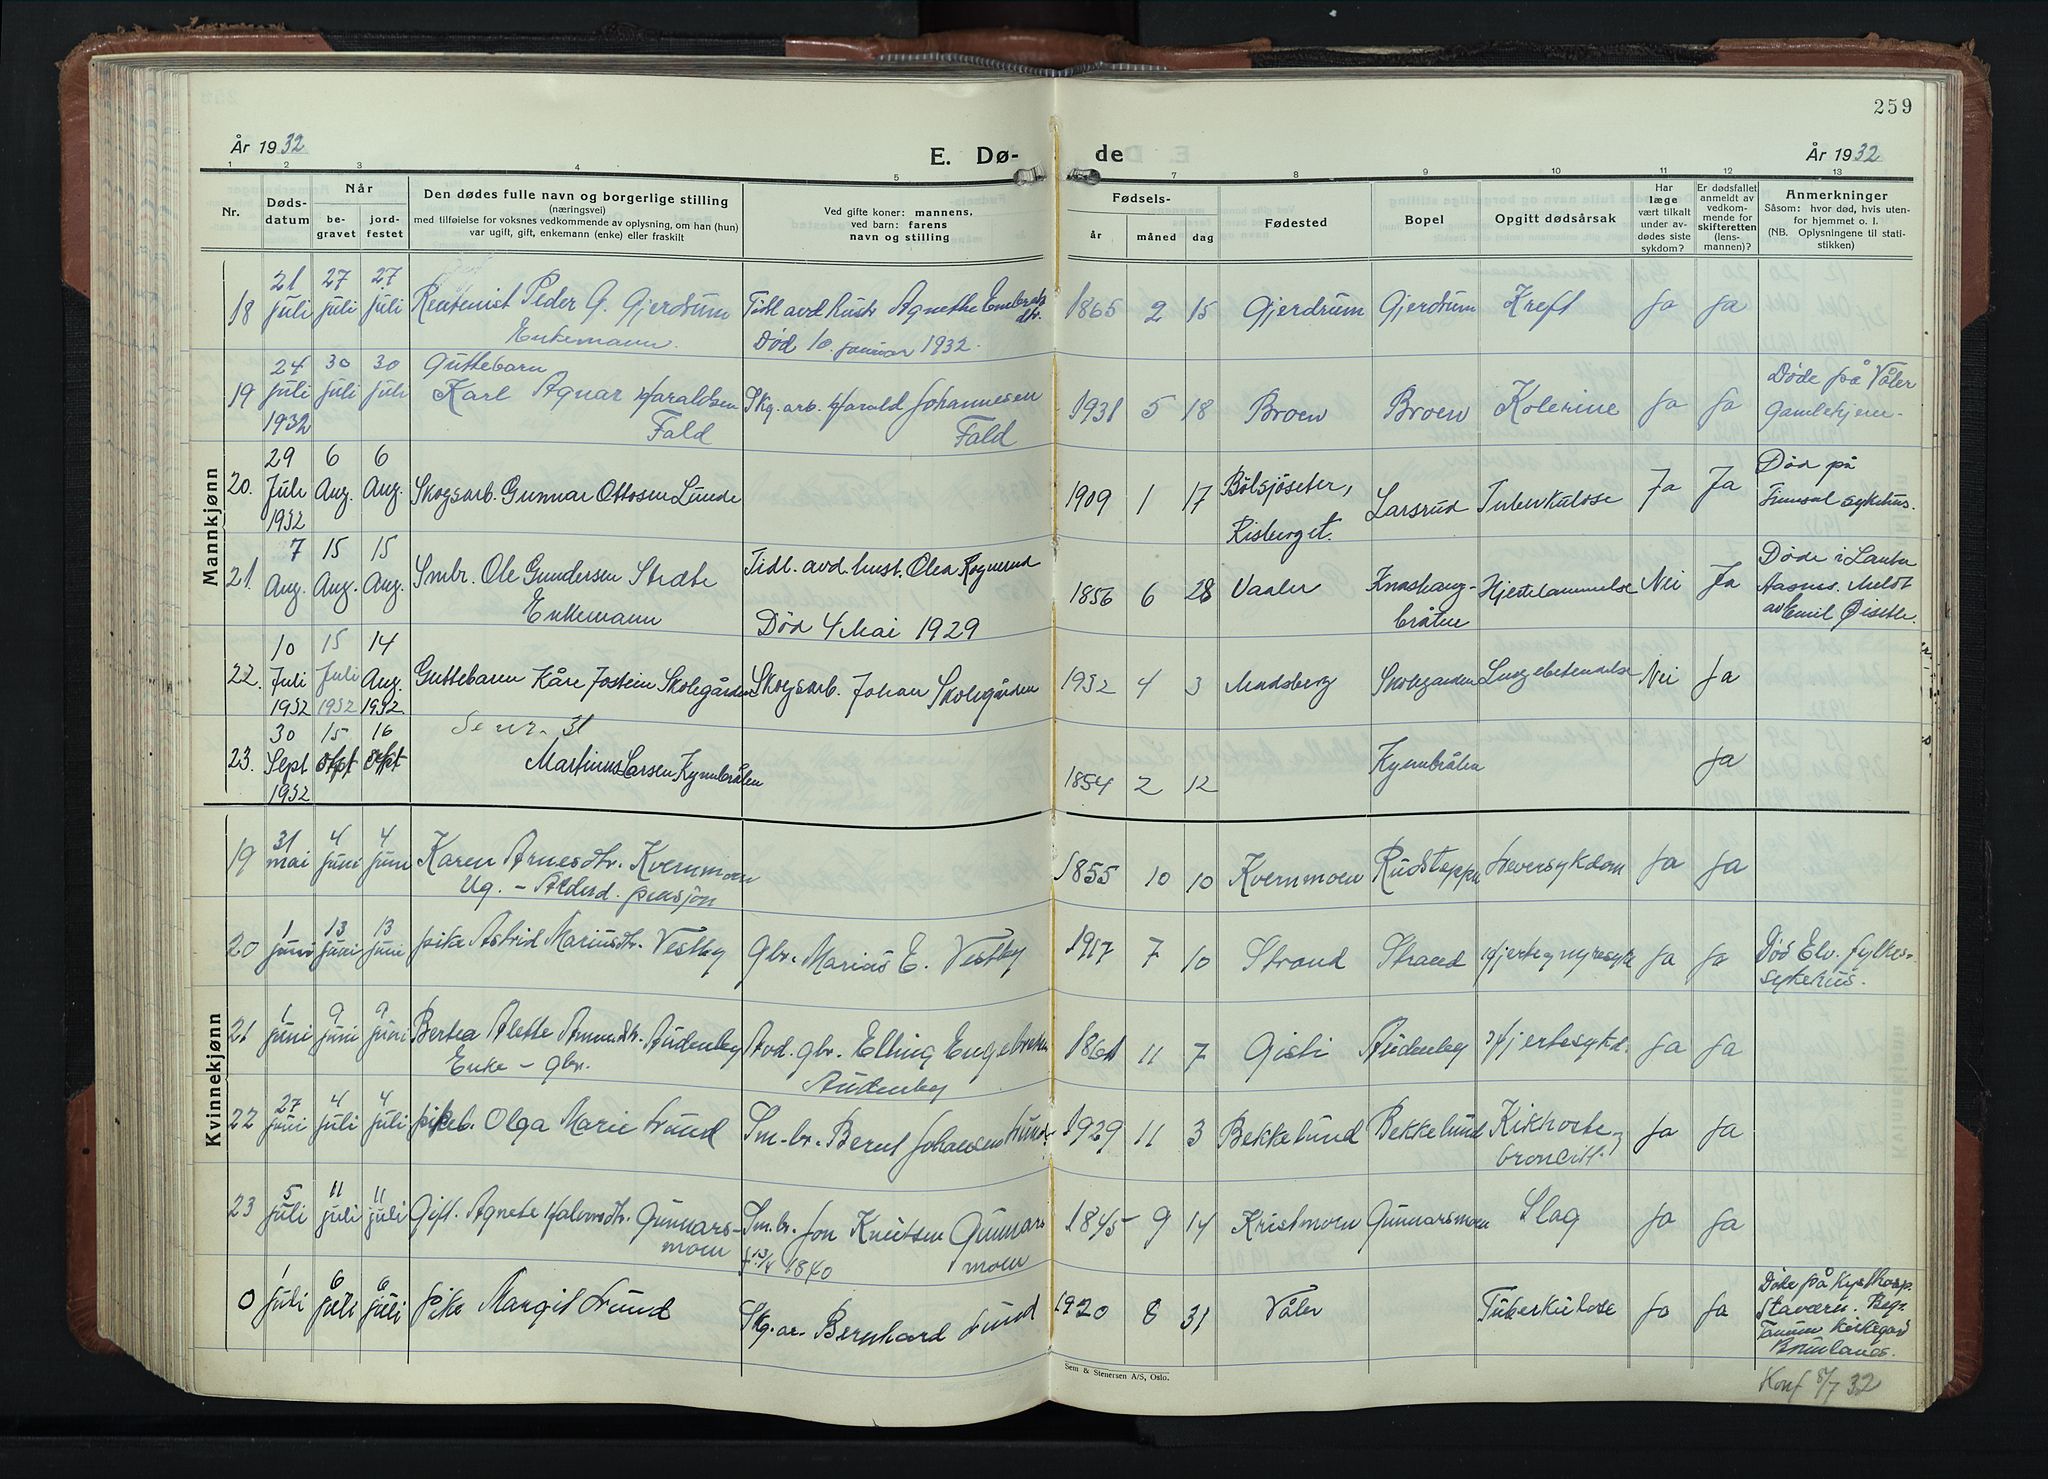 259
År 1932
E. Dø-
de
År 1932
1 2 3 4 5 7 8 9 10 11 12 13
Nr.
Døds-
datum
Når
be-
gravet
jord-
festet
Den dødes fulle navn og borgerlige stilling
(næringsvei)
med tilføielse for voksnes vedkommende av oplysning, om han (hun)
var ugift, gift, enkemann (enke) eller fraskilt
Ved gifte koner: mannens,
ved barn: farens
navn og stilling
Fødsels-
år måned dag
Fødested
Bopel
Opgitt dødsårsak
Har
læge
vært tilkalt
under av-
dødes siste
sykdom?
Er dødsfallet
anmeldt av
vedkom-
mende for
skifteretten
(lens-
mannen)?
Anmerkninger
Såsom: hvor død, hvis uten-
for hjemmet o. l.
(NB. Oplysningene til stati-
stikken)
Mannkjønn
18 21 juli 27 juli 27 juli Rentenist Peder G. Gjerdrum Tidl avd hustr Agnethe 1865 2 15 Gjerdrum Gjerdrum Kreft Ja Ja
Enkemann. Død 10. januar 1932.
19 24 juli 1932 30 juli 30 juli Guttebarn
Karl Agnar Haraldsen Skg. arb. Harald Johannesen 1931 5 18 Broen Broen Kolerine Ja Ja Døde på Våler
Fald Fald Gamlehjem.
20. 29 Juli 1932 6 Aug. 6 Aug. Skogsarb. Gunnar Ottosen Lunde 1909 1 17 Bølsjøseter, Larsrud Tuberkulose Ja Ja Død på
Risberget. sykehus.
21. 7 Aug. 15 Aug. 15 Aug. Smbr. Ole Gundersen Tidl. avd. hust. Olea Rognerud 1856 6 28 Vaaler Hjertelammelse Nei Ja Døde i
Enkemann Død 4 Mai 1929 bråten Meldt
av Emil
22. 10 Juli 1932 15 Juli 1932 14 Aug. 1932. Guttebarn Kåre Jostein Skolegården Skogsarb. Johan Skolegården 1932 4 3 Madsberg Skolegården Lungebetendelse Nei Ja
Se nr. 31
23. 30 Sept 1932 15 16 Martinus Larsen Kynnbråten 1854 2 12 Kynnbråten Ja
Kvinnekjønn
19 31 mai 4 juni 4 juni Karen Arnesdtr. Kvernmoen 1855 10 10 Kvernmoen Rudsteppen Leversykdom Ja Ja
Ug. – Alderd. pensjon
20 1 juni 13 juni 13 juni pike Astrid Mariusdtr. Vestby Gbr. Marius E. Vestby 1917 7 10 Strand Strand Hjerte og nyresyk Ja Ja Død Elv. fylkes-
sykehus.
21 1 juni 9 juni 9 juni Bertea Alette Audenby Avd. gbr. Elling Engebretsen 1861 11 7 Gisti Audenby Hjertesykd. Ja Ja
Enke – gbr. Audenby
22 27 juni 4 juli 4 juli pikeb. Olga Marie Lund Sm.br. Bernt Johansen Lund 1929 11 3 Bekkelund Bekkelund Kikhoste, Ja Ja
broncitt.
23 5 juli 11 juli 11 juli Gift. Agnete Halvorsdtr. Gunnars- Sm.br. Jon Knutsen Gunnars 1845 9 14 Kristmoen Gunnarsmoen Slag Ja Ja
moen f. 13/4 1840 moen
0 1 juli 6 juli 6 juli pike Margit Lund Skg. ar. Bernhard Lund 1920 8 31 Våler Tuberkulose Ja Ja Døde på Kysthosp.
Stavern. Begr.
Tanum kirkegård
Brunlanes.
Sem & Stenersen A/S, Oslo.
Konf 8/7 32